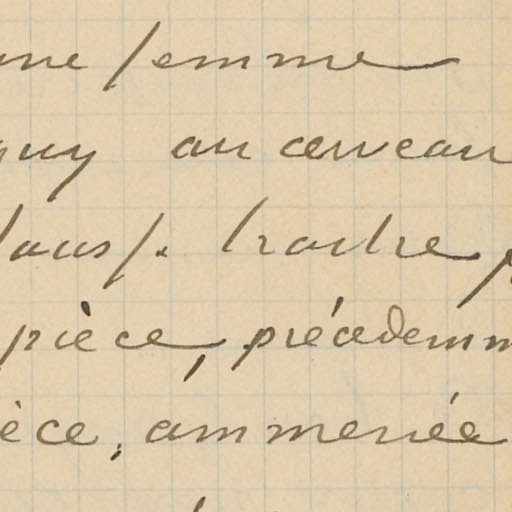 une femme
guy au cerveau
dans s. trachée
pièce, précédemm
èce, ammenée